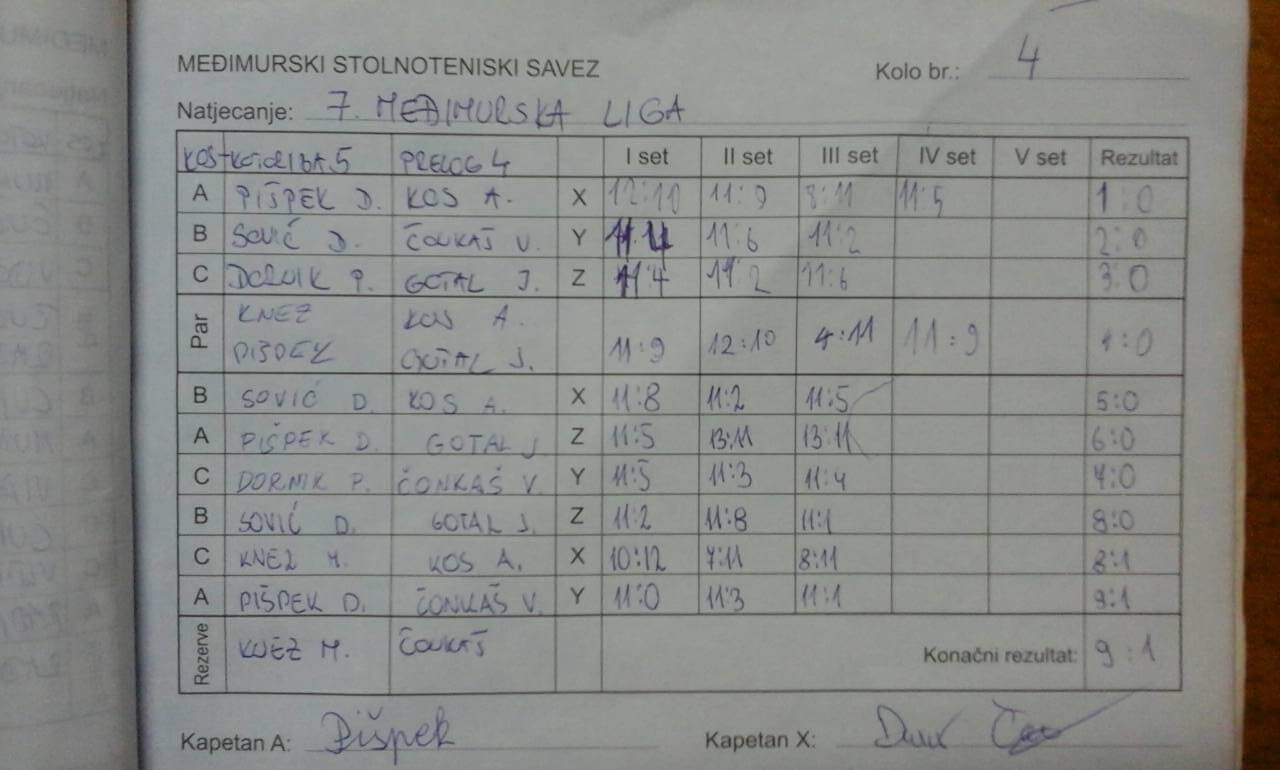 MEĐIMURSKI STOLNOTENISKI SAVEZ
Kolo br.: 4
Natjecanje: 7. MEĐIMURSKA LIGA
KOTORIBA 5 PRELOG 4 I set II set III set IV set V set Rezultat
A PIŠPEK D. KOS A. X 12:10 11:9 8:11 11:5 1:0
B SOVIĆ D. ČONKAŠ V. Y 11:4 11:6 11:2 2:0
C DORNIK P. GOTAL J. Z 11:4 11:2 11:6 3:0
Par
KNEZ KOS A.
PIŠPEK GOTAL J. 11:9 12:10 4:11 11:9 4:0
B SOVIĆ D. KOS A. X 11:8 11:2 11:5 5:0
A PIŠPEK D. GOTAL J. Z 11:5 13:11 13:11 6:0
C DORNIK P. ČONKAŠ V. Y 11:5 11:3 11:4 7:0
B SOVIĆ D. GOTAL J. Z 11:2 11:8 11:1 8:0
C KNEZ M. KOS A. X 10:12 7:11 8:11 8:1
A PIŠPEK D. ČONKAŠ V. Y 11:0 11:3 11:1 9:1
Rezerve KNEZ M. ČONKAŠ Konačni rezultat: 9:1
Kapetan A: Pišpek Kapetan X: